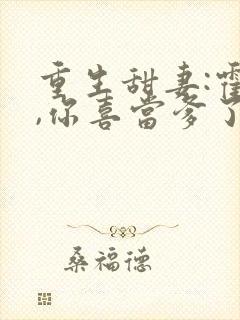 重生甜妻:霍
,你喜當爹了
桑福德